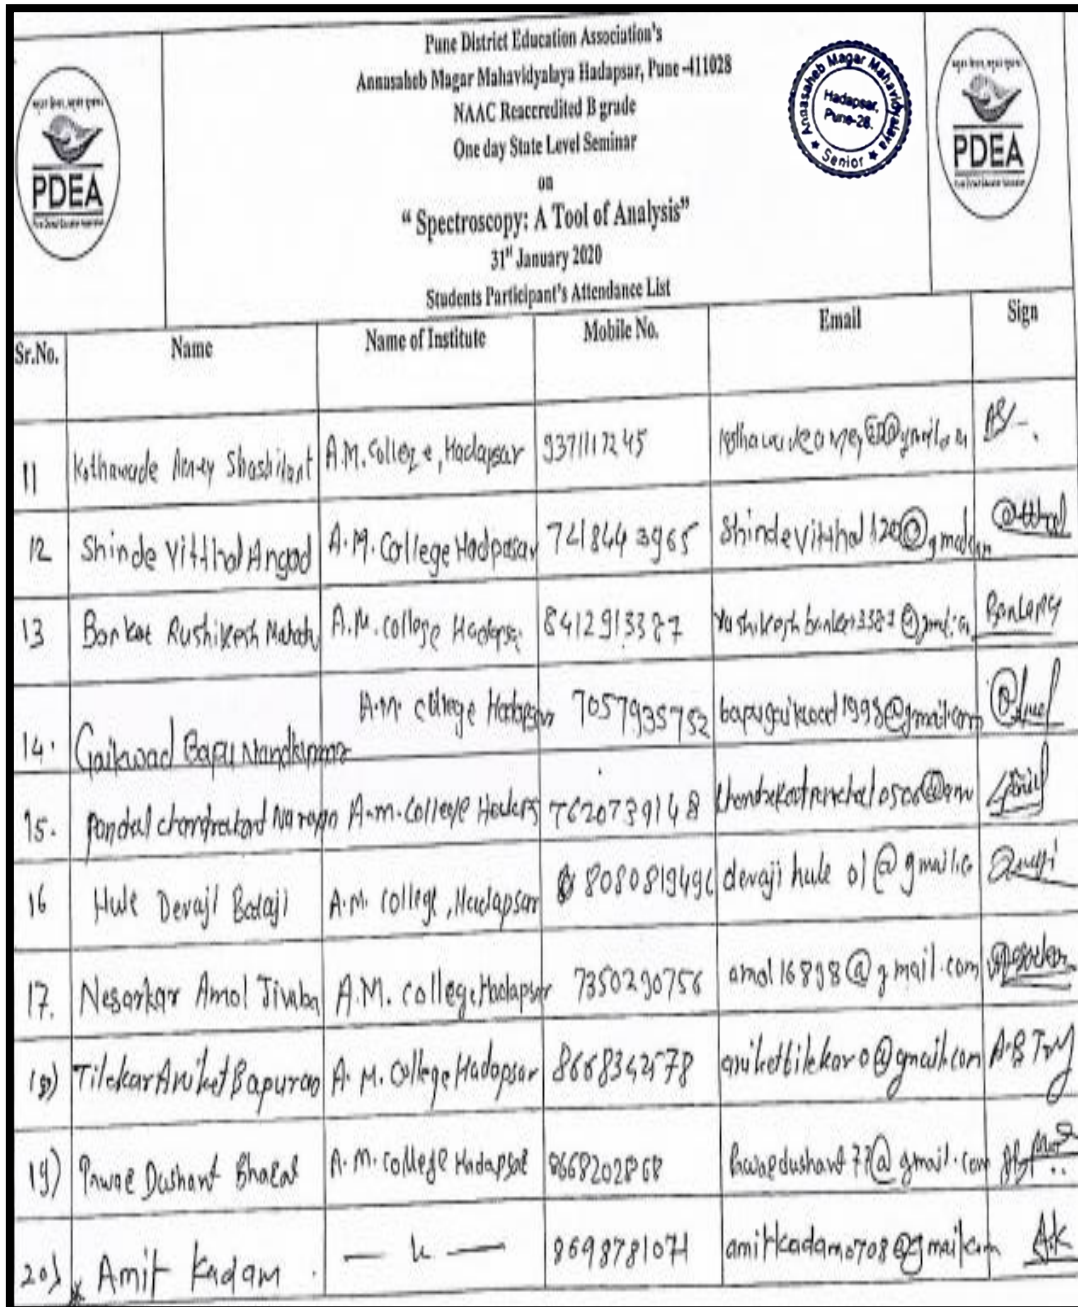 Pune District Education Association's
Annasaheb Magar Mahavidyalaya Hadapsar, Pune -411028
NAAC Reaccredited B grade
One day State Level Seminar
on
“ Spectroscopy: A Tool of Analysis”
31st January 2020
Students Participant's Attendance List
PDEA
Annasaheb Magar Mahavidyalaya
Hadapsar,
Pune-28.
★ Senior ★
PDEA
Sr.No. Name Name of Institute Mobile No. Email Sign
11 Kothawade Shashikant A.M. College, Hadapsar 9371117245
12 Shinde Vitthal Angad A.M. College Hadpasar 7218443965
13 Bankar Rushikesh Mahadu A.M. college 8412913387
14. Gaikwad Bapu Nandkumar A.M. college Hadapsar 7057935752 bapugaikwad1998@gmail.com
15. Narayan A.M. College 7620739148
16 Hule Devaji Balaji A.M. college, Hadapsar devaji hule 01@gmail.co
17. Nesarkar Amol Jivaba A.M. college Hadapsar 7350290756 amol16898@gmail.com
18) Tilekar Aniket Bapurao A. M. College Hadapsar anikettilekar0@gmail.com
19) Pawar Dushant Bharat A. M. College Hadapsar 8668202868 pawardushant77@gmail.com
20) Amit Kadam. — u — 8698781071 amitkadam0708@gmail.com AK